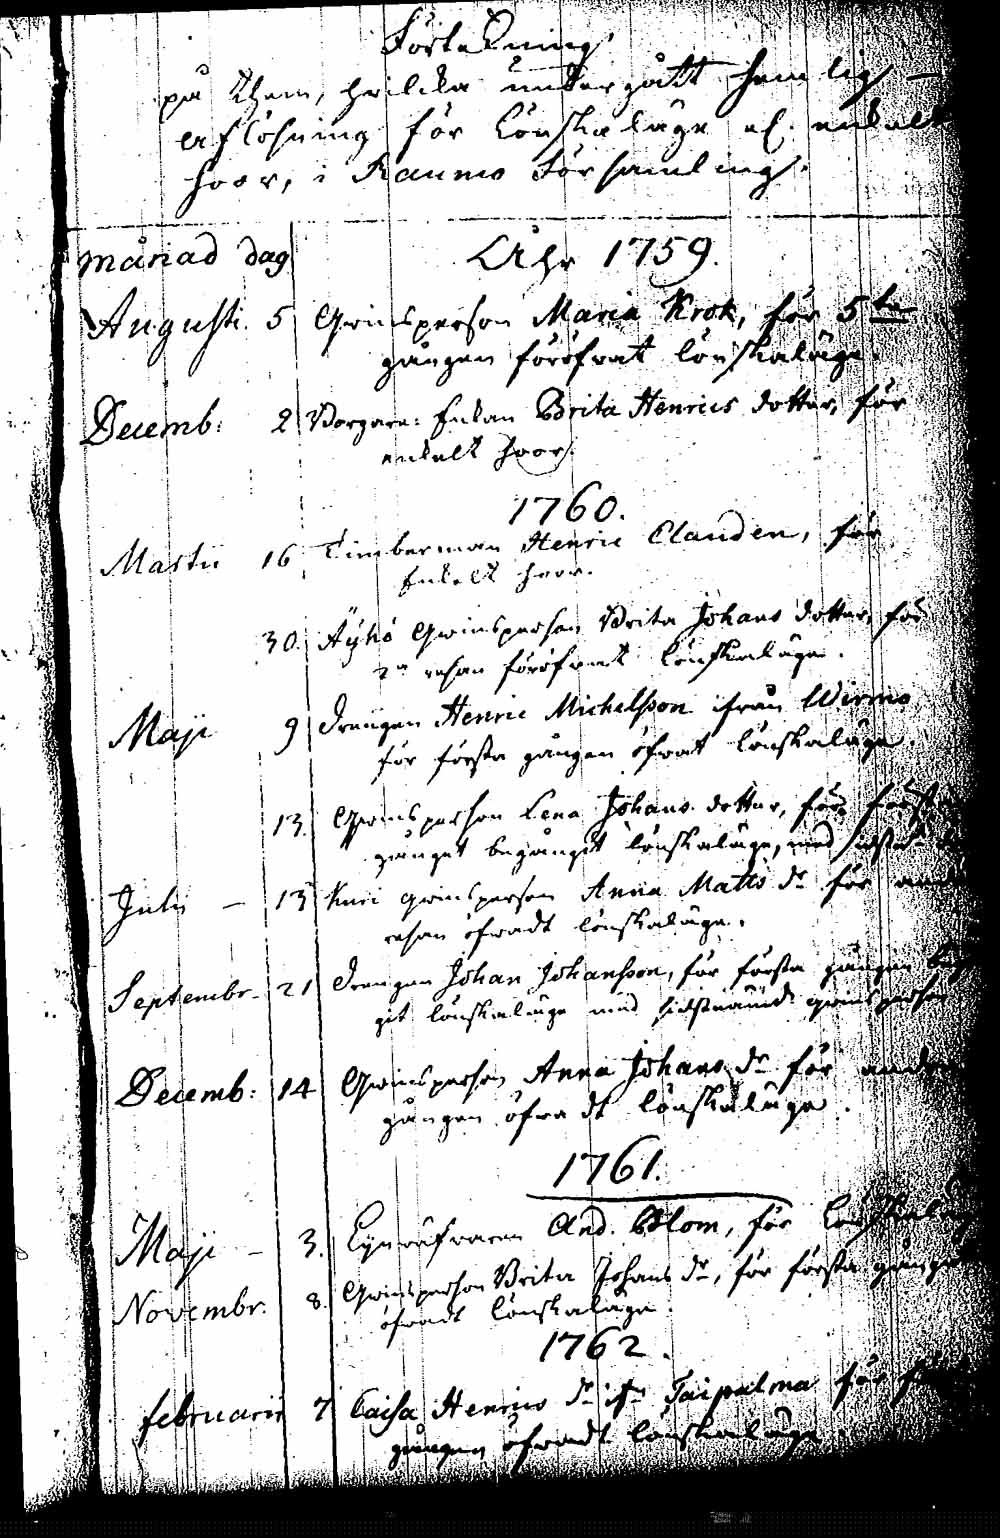 Förteckning
på them, hvilcka undergått hemlig
aflösning för Lönskaläge el. enkelt
hoor, i Raumo Församling.
Månad dag Åhr 1759.
Augusti. 5 Qvinsperson Maria Krok, för 5te
gången föröfvat lönskaläge.
Decemb: 2 Borgare: Enkan Brita Henrics dotter, för
enkelt hoor.
1760.
Martii 16 Timberman Henric Clauden, för
Enkelt hoor.
30. Äyhö Qvinsperson Brita Johans dotter, för
2a resan föröfvat Lönskaläge.
Maji 9 Drengen Henric Michelsson ifrån Wirmo
för första gången öfvat lönskaläge.
13. Qvinsperson Lena Johans dotter, för först
gånget begångit lönskaläge, med
Julii – 13 qvinsperson Anna Matts dr för
resan öfvadt lönskaläge.
Septembr. 21 Drengen Johan Johansson, för första gången
git lönskaläge med sidstnämde qvinsperson
Decemb: 14 Qvinsperson Anna Johans dr för andra
gången öfvadt lönskaläge.
1761.
Maji – 3. And. Blom, för Lönskaläge
Novembr. 8. Qvinsperson Brita Johans dr, för första gången
öfvadt Lönskaläge.
1762.
februarii 7 Caisa Henrics dr ifr. Taipalma för
gången öfvadt lönskaläge.